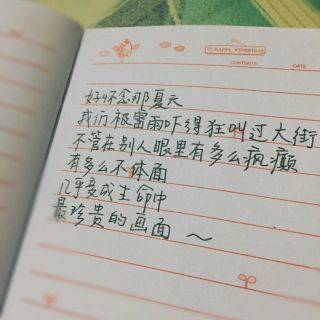 HAPPY
CONTENTS:
DATE:
好怀念那夏天
我们被雷雨吓得狂叫过大街
不管在别人眼里有多么疯癫
有多么不体面
几乎变成生命中
最珍贵的画面 ～